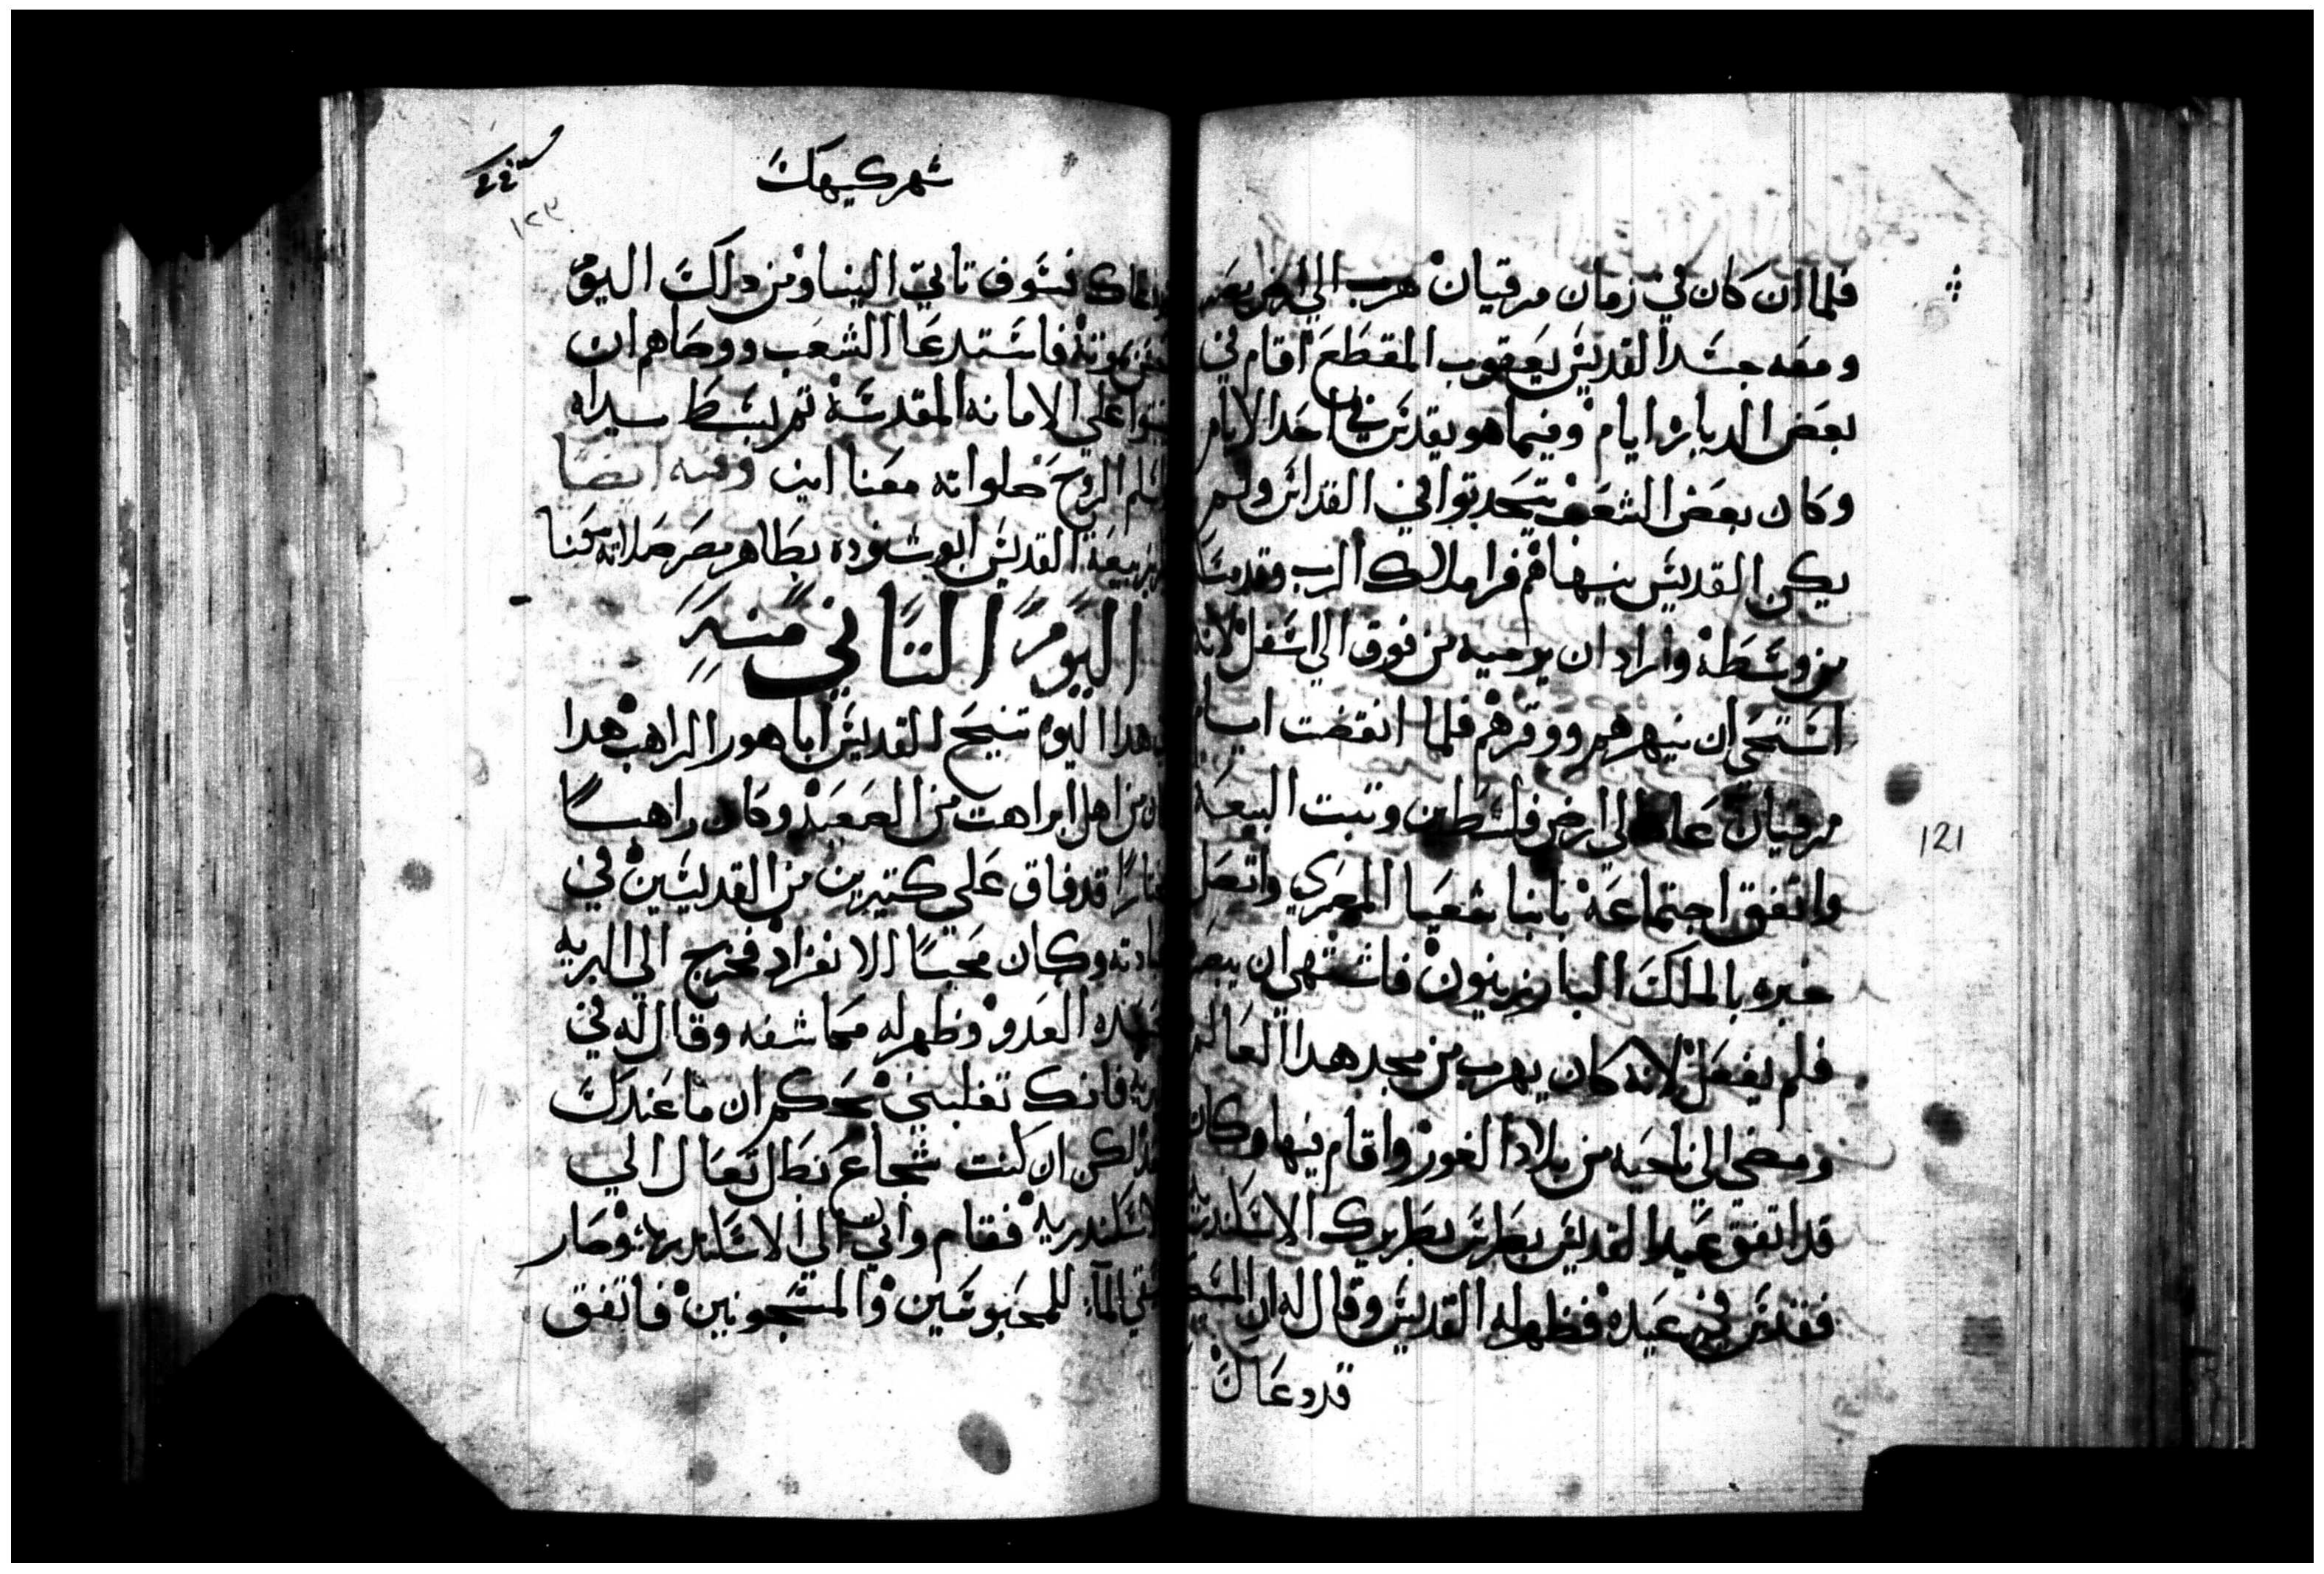 فلما ان كان في زمان مرقيان هرب الي ارض مصر
ومعه جسد القديس يعقوب المقطع اقام في
بعض الدياره ايام وفيما هو يقدس في احد الايام
وكان بعض الشعب يتحدتوا في القداس ولم
يكن القديس ينهاهم فرا ملاك الرب وقد
من وسطه واراد ان يرميه من فوق الي اسفل لانه
استحي ان ينهرهم ووقرهم فلما انقضت ايام
مرقيان عاد الي ارض فلسطين وتبت البيعه
واتفق اجتماعه بانبا شعيا المصري واتصل
خبره بالملك البار زينون فاشتهي ان يبصره
فلم يفعل لانه كان يهرب من مجد هدا العالم
ومضي الي ناحيه من بلاد الغور واقام فيها وكان
قد اتفق عيد القديس بطرس بطريرك الاسكندريه
فقدس في عيده فظهر له القديس وقال له ان المسيح
قد دعاك
121
شهر كيهك
١٢٣
فسوف تاتي الينا ومن دلك اليوم
موته فاستدعا الشعب ووصاهم ان
علي الامانه المقدسة تم بسط يداه
الروح صلواته معنا امين وفيه ايضا
القديس ابو شنوده بظاهر مصر صلاته معنا
اليوم التاني منه
هدا اليوم تنيح القديس اباهور الراهب هدا
كان من اهل ابراهت من الصعيد وكان راهبا
مختارا قد فاق علي كتيرين من القديسين في
عبادته وكان محبا الانفراد فخرج الي البريه
العدو وظهر له مكاشفه وقال له في
البريه فانك تغلبني بحكم ان ما عندك
احد لكن ان كنت شجاع بطل تعال الي
الاسكندريه فقام واتي الي الاسكندريه وصار
يسقي الما للمحبوسين والمسجونين فاتفق